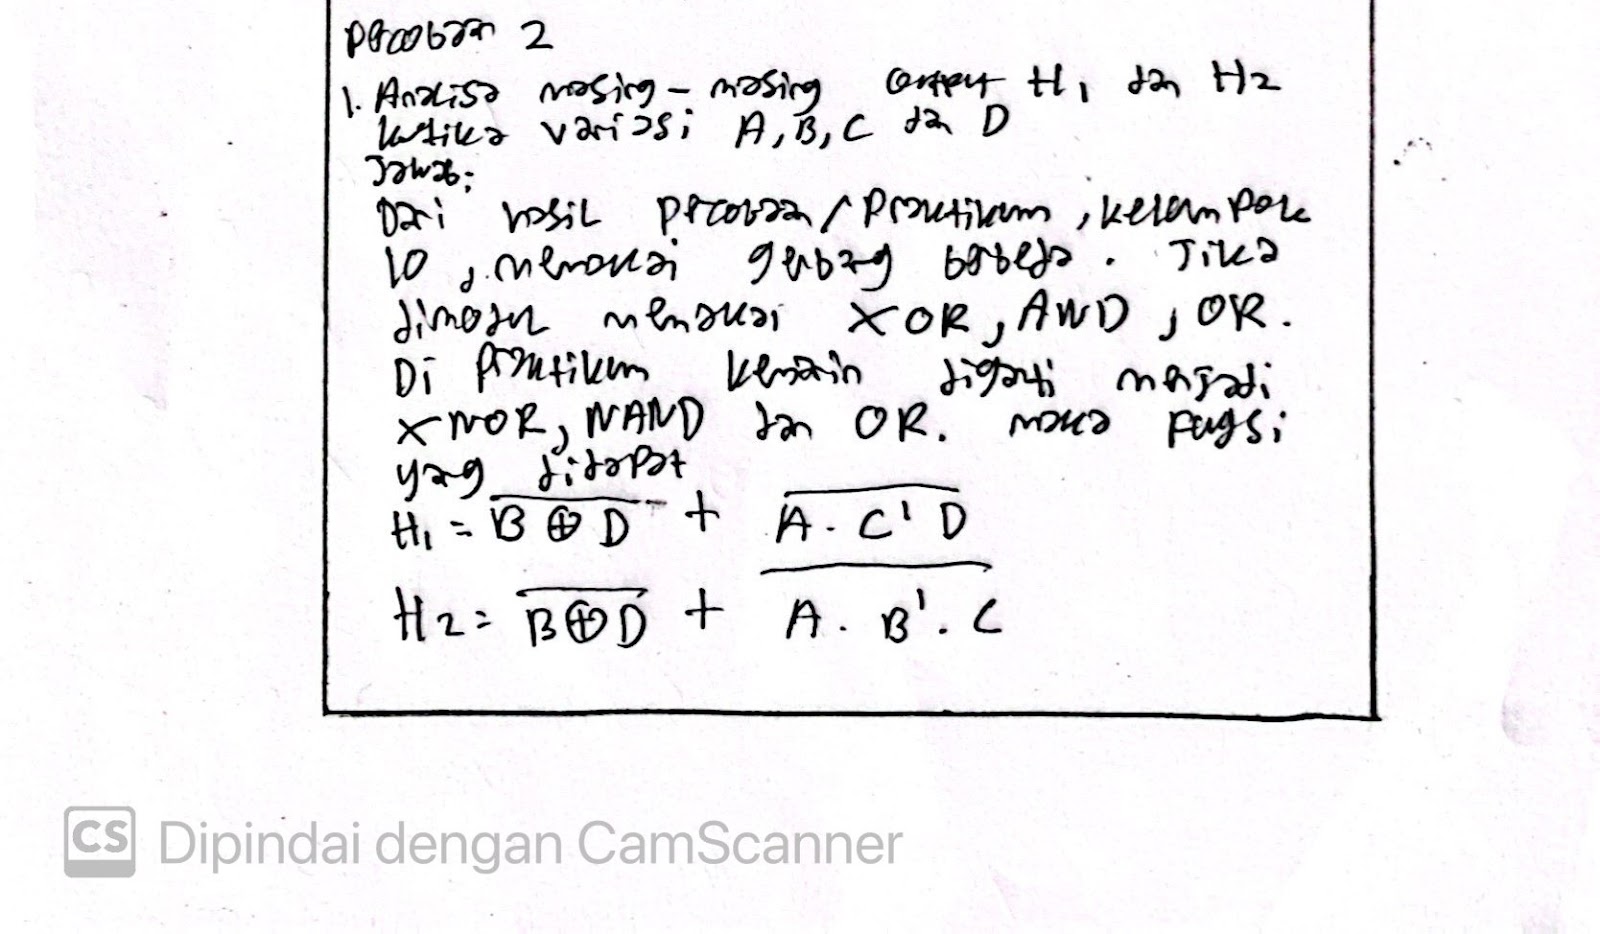 Percobaan 2
1. Analisa masing-masing output H₁ dan H₂
ketika variasi A, B, C dan D
Jawab:
Dari hasil percobaan/Praktikum, kelompok
10, memakai gerbang berbeda. Jika
dimodul memakai XOR, AND, OR.
Di Praktikum kemarin diganti menjadi
XNOR, NAND dan OR. maka Fungsi
yang didapat
H₁ = \overline{B ⊕ D} + \overline{A . C' D}
H₂ = \overline{B ⊕ D} + \overline{A . B' . C}
CS Dipindai dengan CamScanner